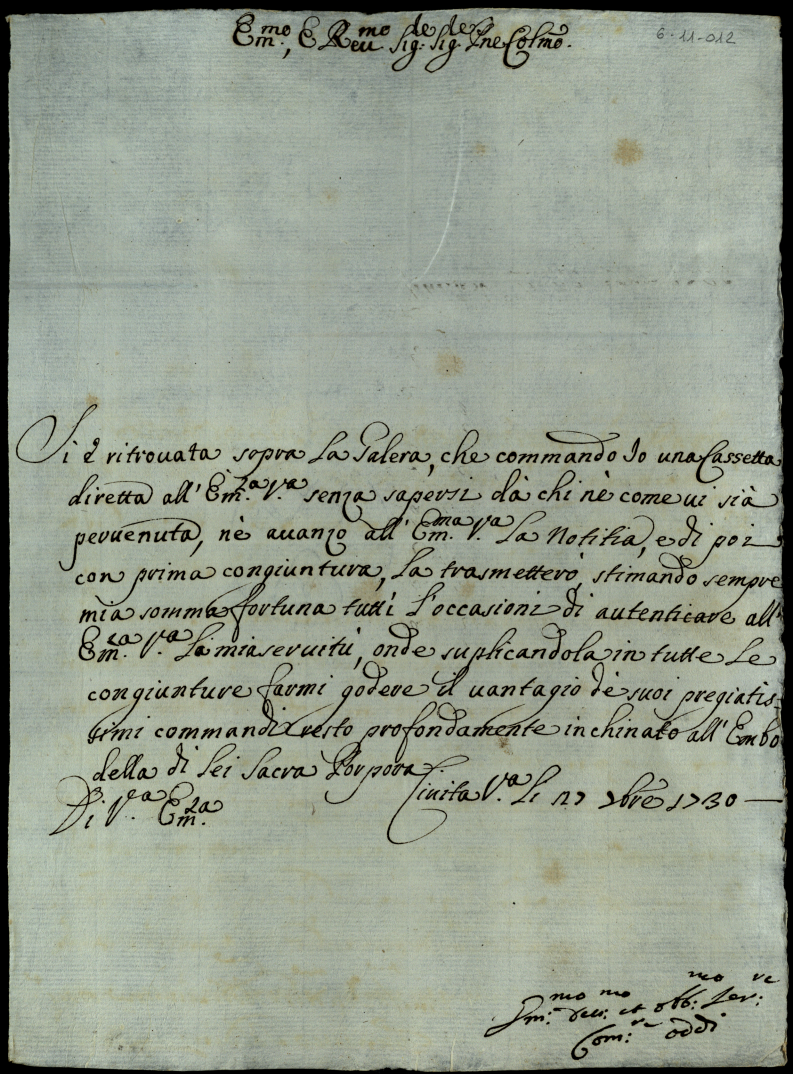 Em.mo, E Reu.mo Sig.re Sig.re Pne Colmo.
6-11-012
Si è ritrouata sopra La Galera, che commando Io una Cassetta
diretta all' Em.za V.ra senza sapersi dà chi nè come ui sià
peruenuta, nè auanzo all' Em.ma V.ra La Notitia, e di poi
con prima congiuntura, La trasmetterò, stimando sempre
mia somma fortuna tutti L'occasioni di autenticare all'
Em.za V.ra La mia seruitù, onde suplicandola in tutte Le
congiunture farmi godere il uantagio de suoi pregiatis-
simi commandi resto profondamente inchinato all' Embo
della di Lei Sacra Porpora
Ciuita V.a Li 27 9bre 1730
Di V.ra Em.za
Um.mo deu.mo et obb.mo Ser.re
Com.re oddi